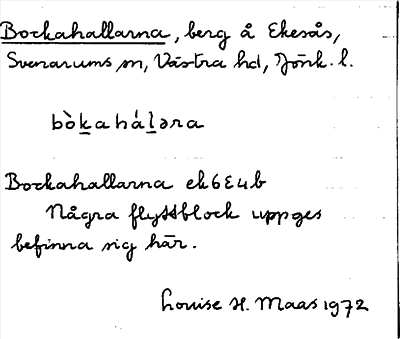 Bockahallarna, berg å Ekesås,
Svenarums sn, Västra hd, Jönk. l.
bòkahálǝra
Bockahallarna ek 6E4b
Några flyttblock uppges
befinna sig här.
Louise H. Maas 1972